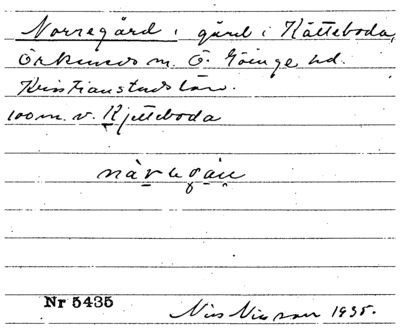 Norregård, gård i Kätteboda,
Örkeneds m. Ö. Göinge hd.
Kristianstads län.
100 m. v. Kjetteboda
Nr 5435
Nils Nilsson 1935.